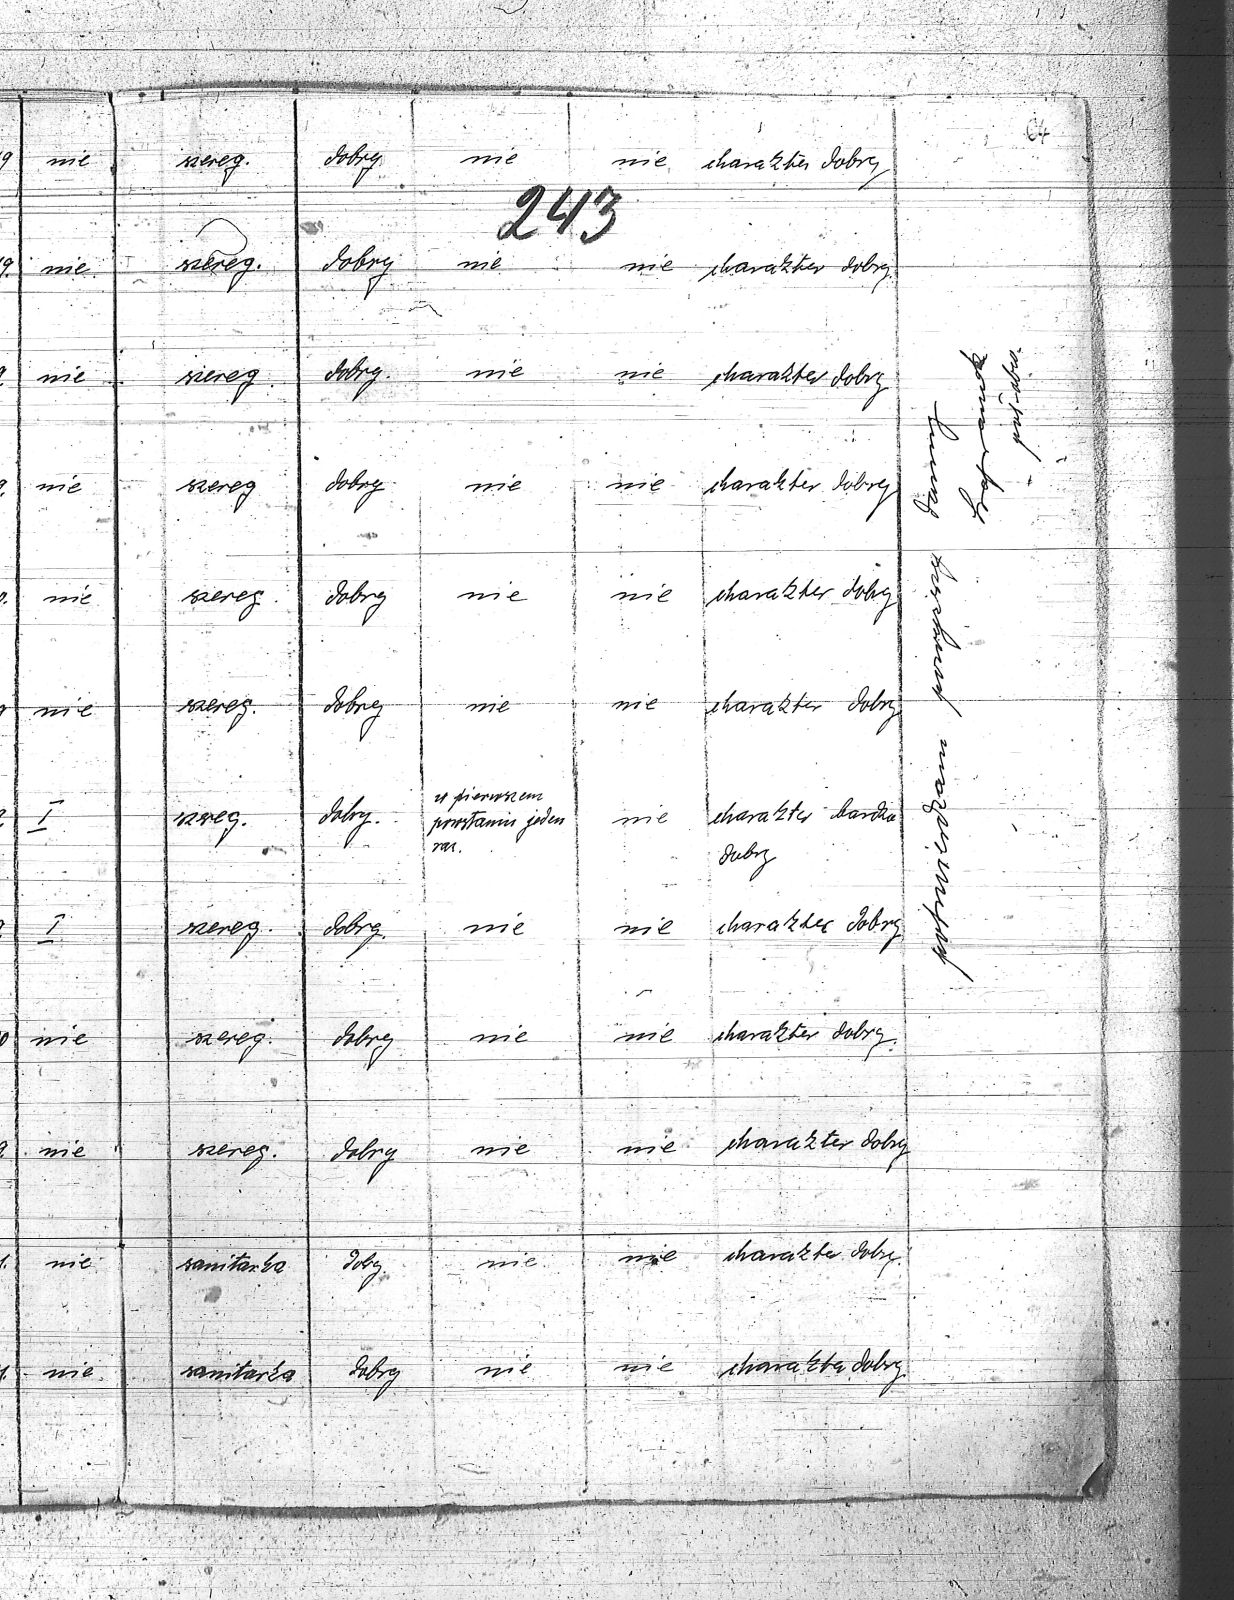 64
9 nie szereg. dobry nie nie charakter dobry
243
9. nie szereg. dobry nie nie charakter dobry
9. nie szereg dobry. nie nie charakter dobry
9. nie szereg dobry nie nie charakter dobry
0. nie szereg. dobry nie nie charakter dobry
nie szereg. dobry nie nie charakter dobry
I szereg. dobry. w pierwszem nie charakter bardzo
powstaniu jeden
raz. dobry
I szereg. dobry. nie nie charakter dobry
0 nie szereg. dobry nie nie charakter dobry.
9. nie szereg. dobry nie nie charakter dobry
1. nie sanitarka dobry. nie nie charakter dobry.
1. nie sanitarka dobry nie nie charakter dobry
danych